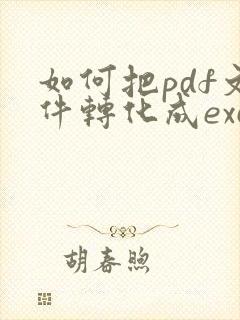 如何把pdf文
件轉化成exc
胡春煦